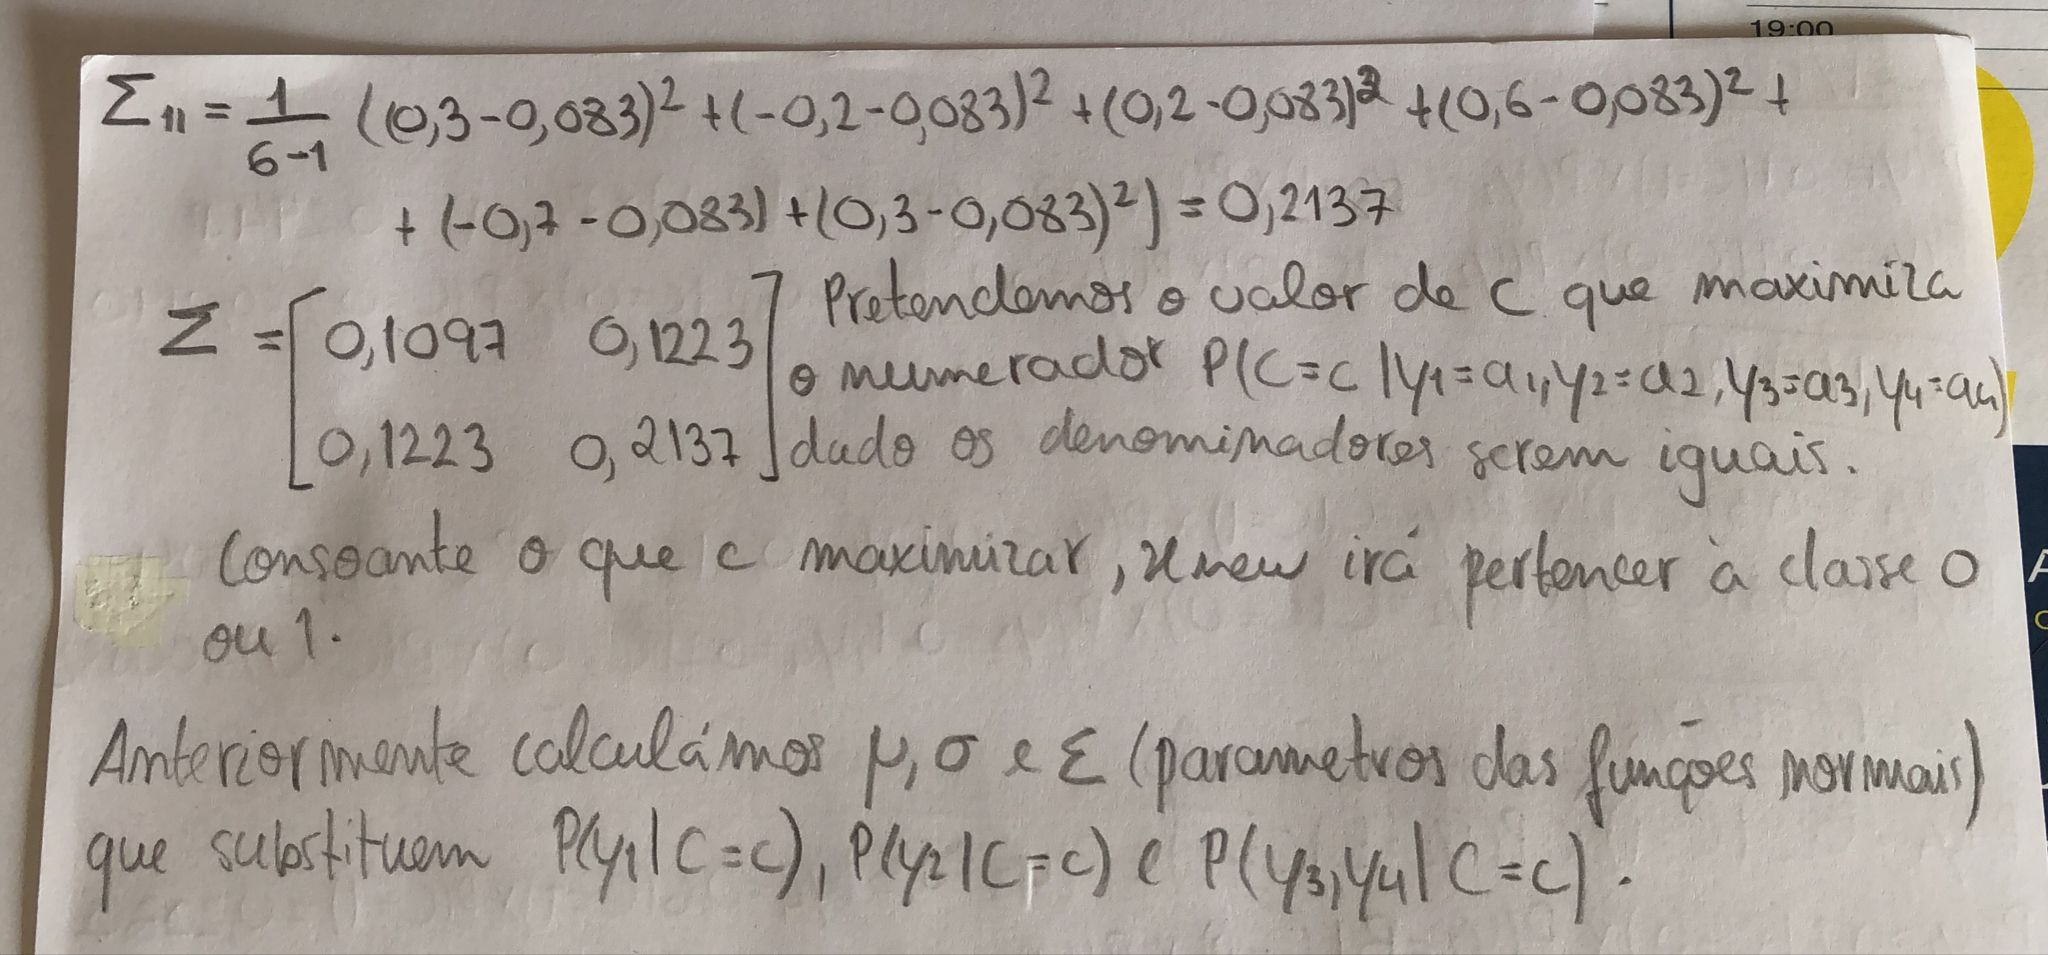 19:00
Σ₁₁ = 1/(6-1) ((0,3-0,083)² + (-0,2-0,083)² + (0,2-0,083)² + (0,6-0,083)² +
+ (-0,7-0,083) + (0,3-0,083)²) = 0,2137
Σ = [0,1097 0,1223
0,1223 0,2137]
Pretendemos o valor de c que maximiza
o numerador P(C=c | y1=a1, y2=a2, y3=a3, y4=a4)
dado os denominadores serem iguais.
Consoante o que c maximizar, xnew irá pertencer à classe 0
ou 1.
Anteriormente calculámos μ, σ e Σ (parametros das funções normais)
que substituem P(y1 | C=c), P(y2 | C=c) e P(y3, y4 | C=c).